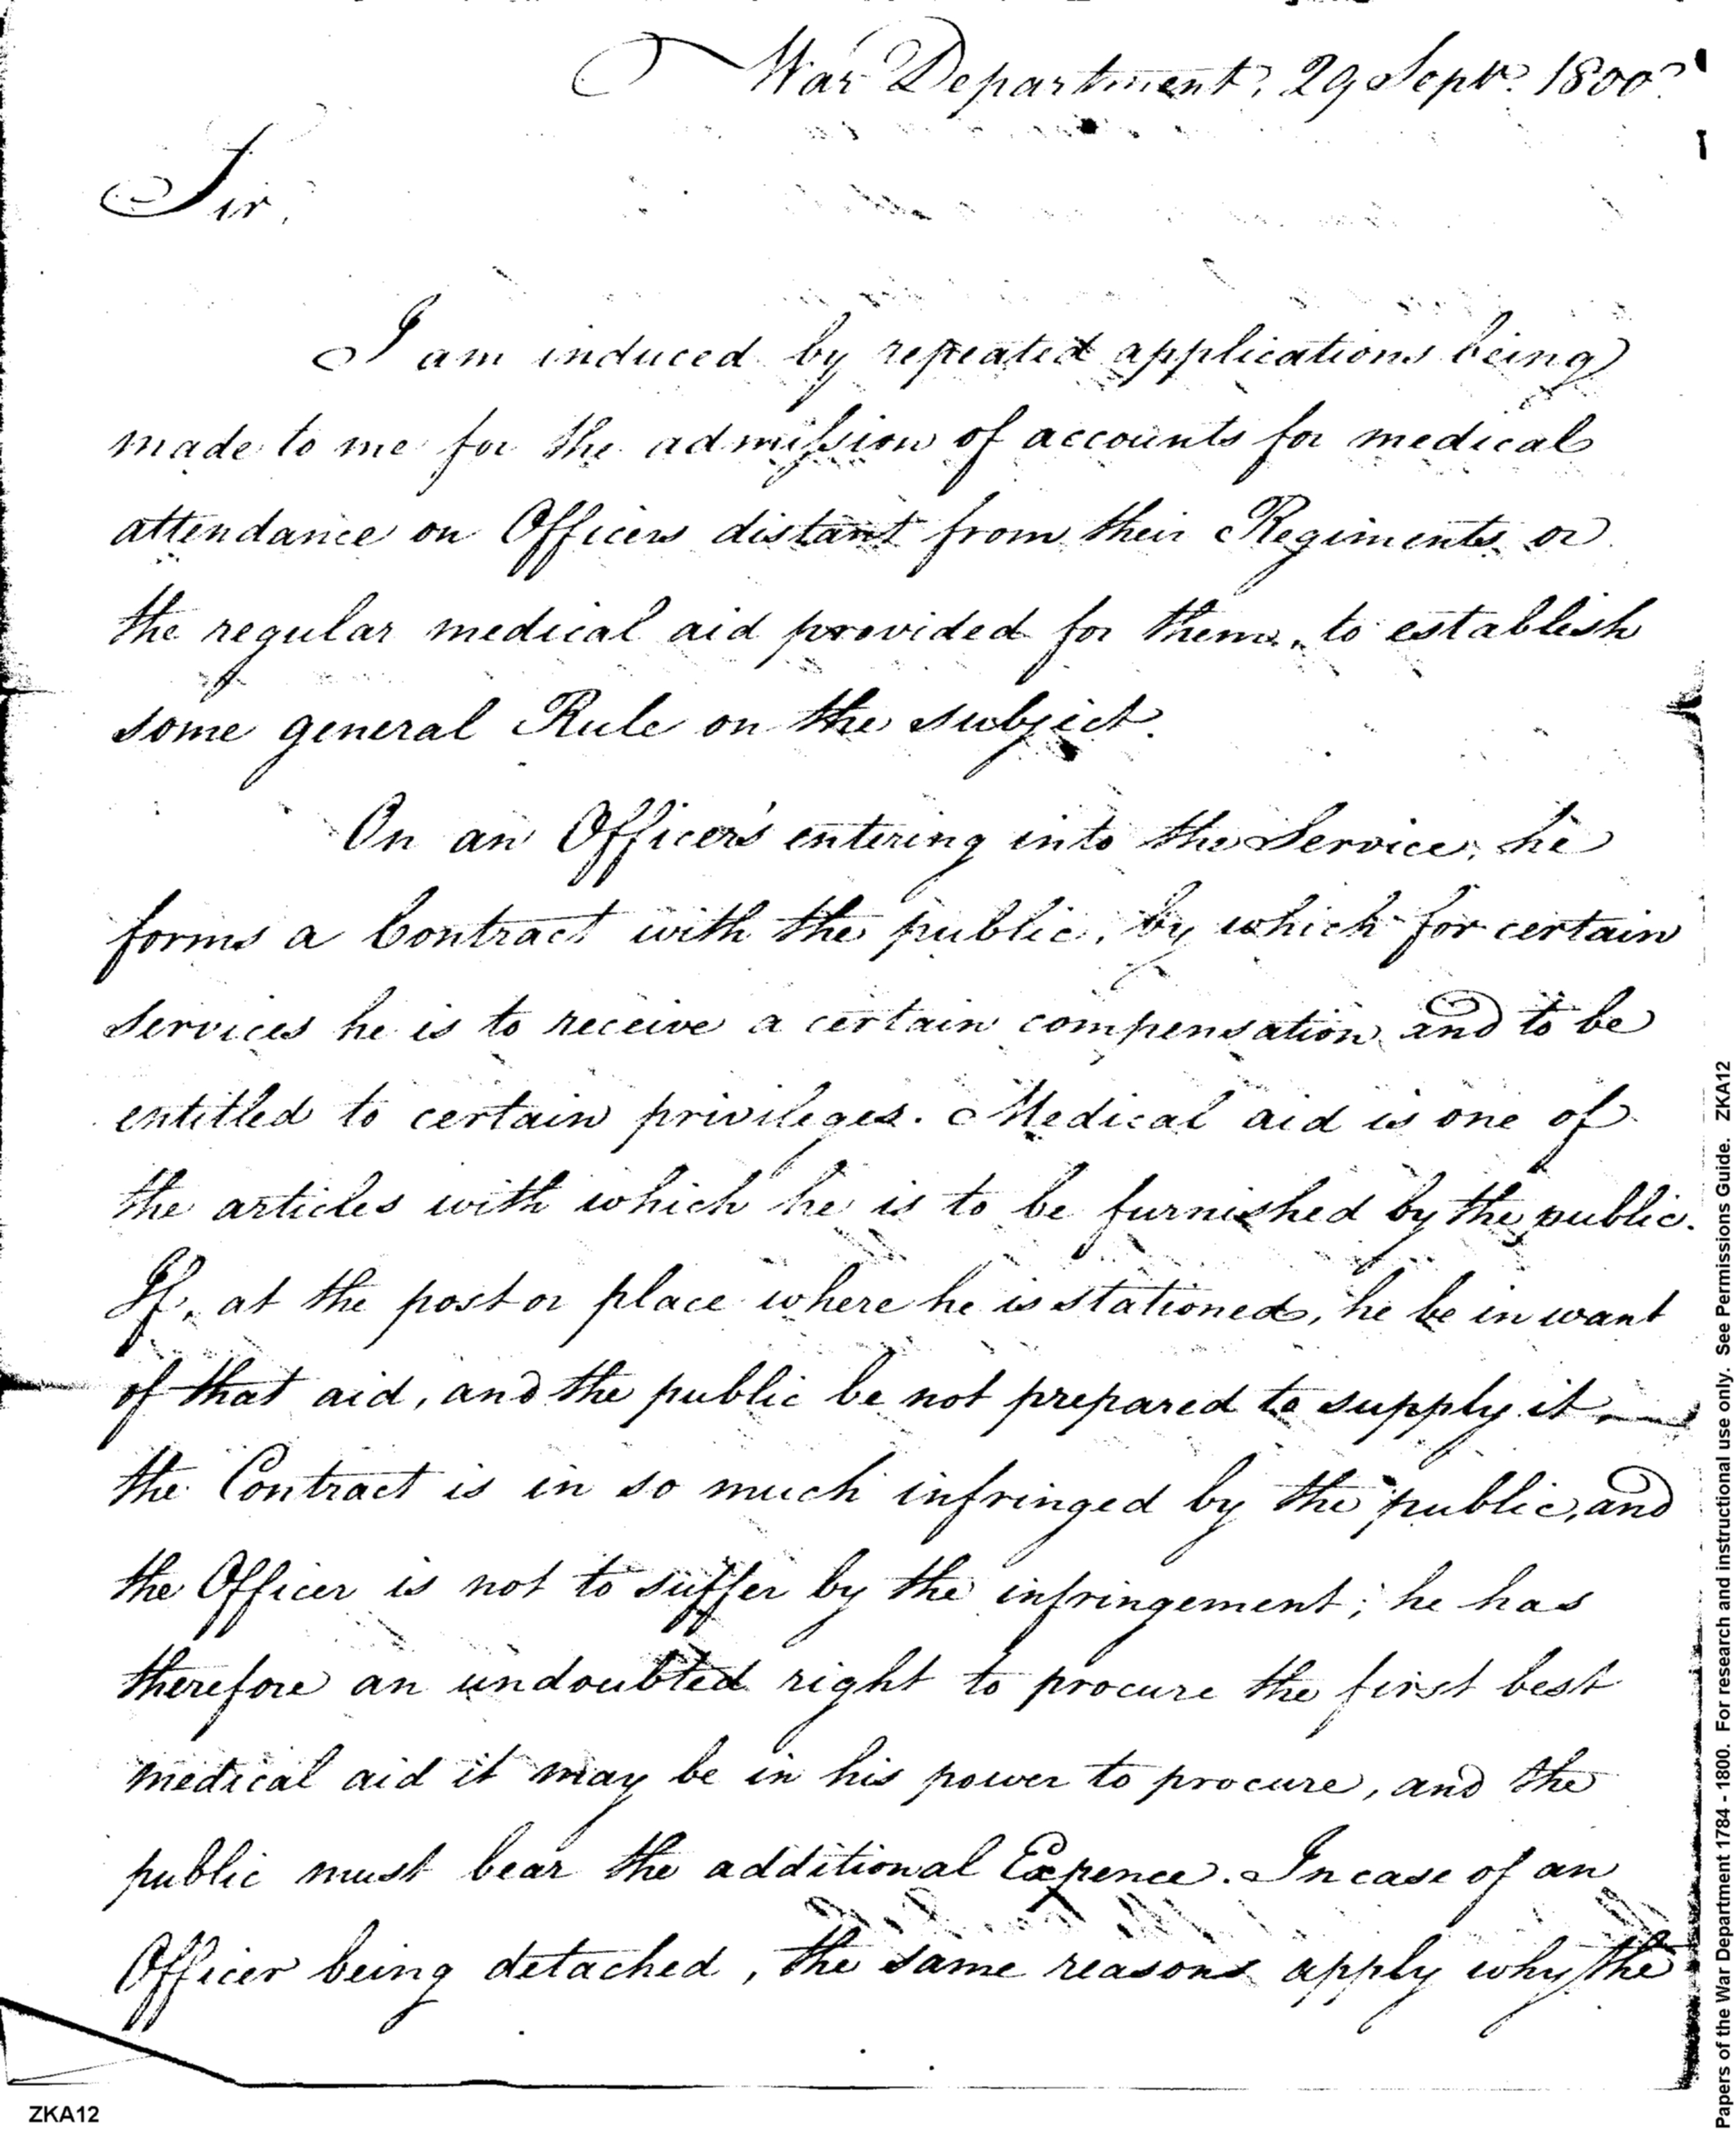 War Department, 29 Sept. 1800.
Sir,
I am induced by repeated applications being
made to me for the admission of accounts for medical
attendance on Officers distant from their Regiments or
the regular medical aid provided for them, to establish
some general Rule on the subject.
On an Officer's entering into the Service, he
forms a Contract with the public, by which for certain
services he is to receive a certain compensation and to be
entitled to certain privileges. Medical aid is one of
the articles with which he is to be furnished by the public.
If, at the post or place where he is stationed, he be in want
of that aid, and the public be not prepared to supply it,
the Contract is in so much infringed by the public, and
the Officer is not to suffer by the infringement; he has
therefore an undoubted right to procure the first best
medical aid it may be in his power to procure, and the
public must bear the additional Expence. In case of an
Officer being detached, the same reasons apply why the
ZKA12
Papers of the War Department 1784 - 1800. For research and instructional use only. See Permissions Guide. ZKA12